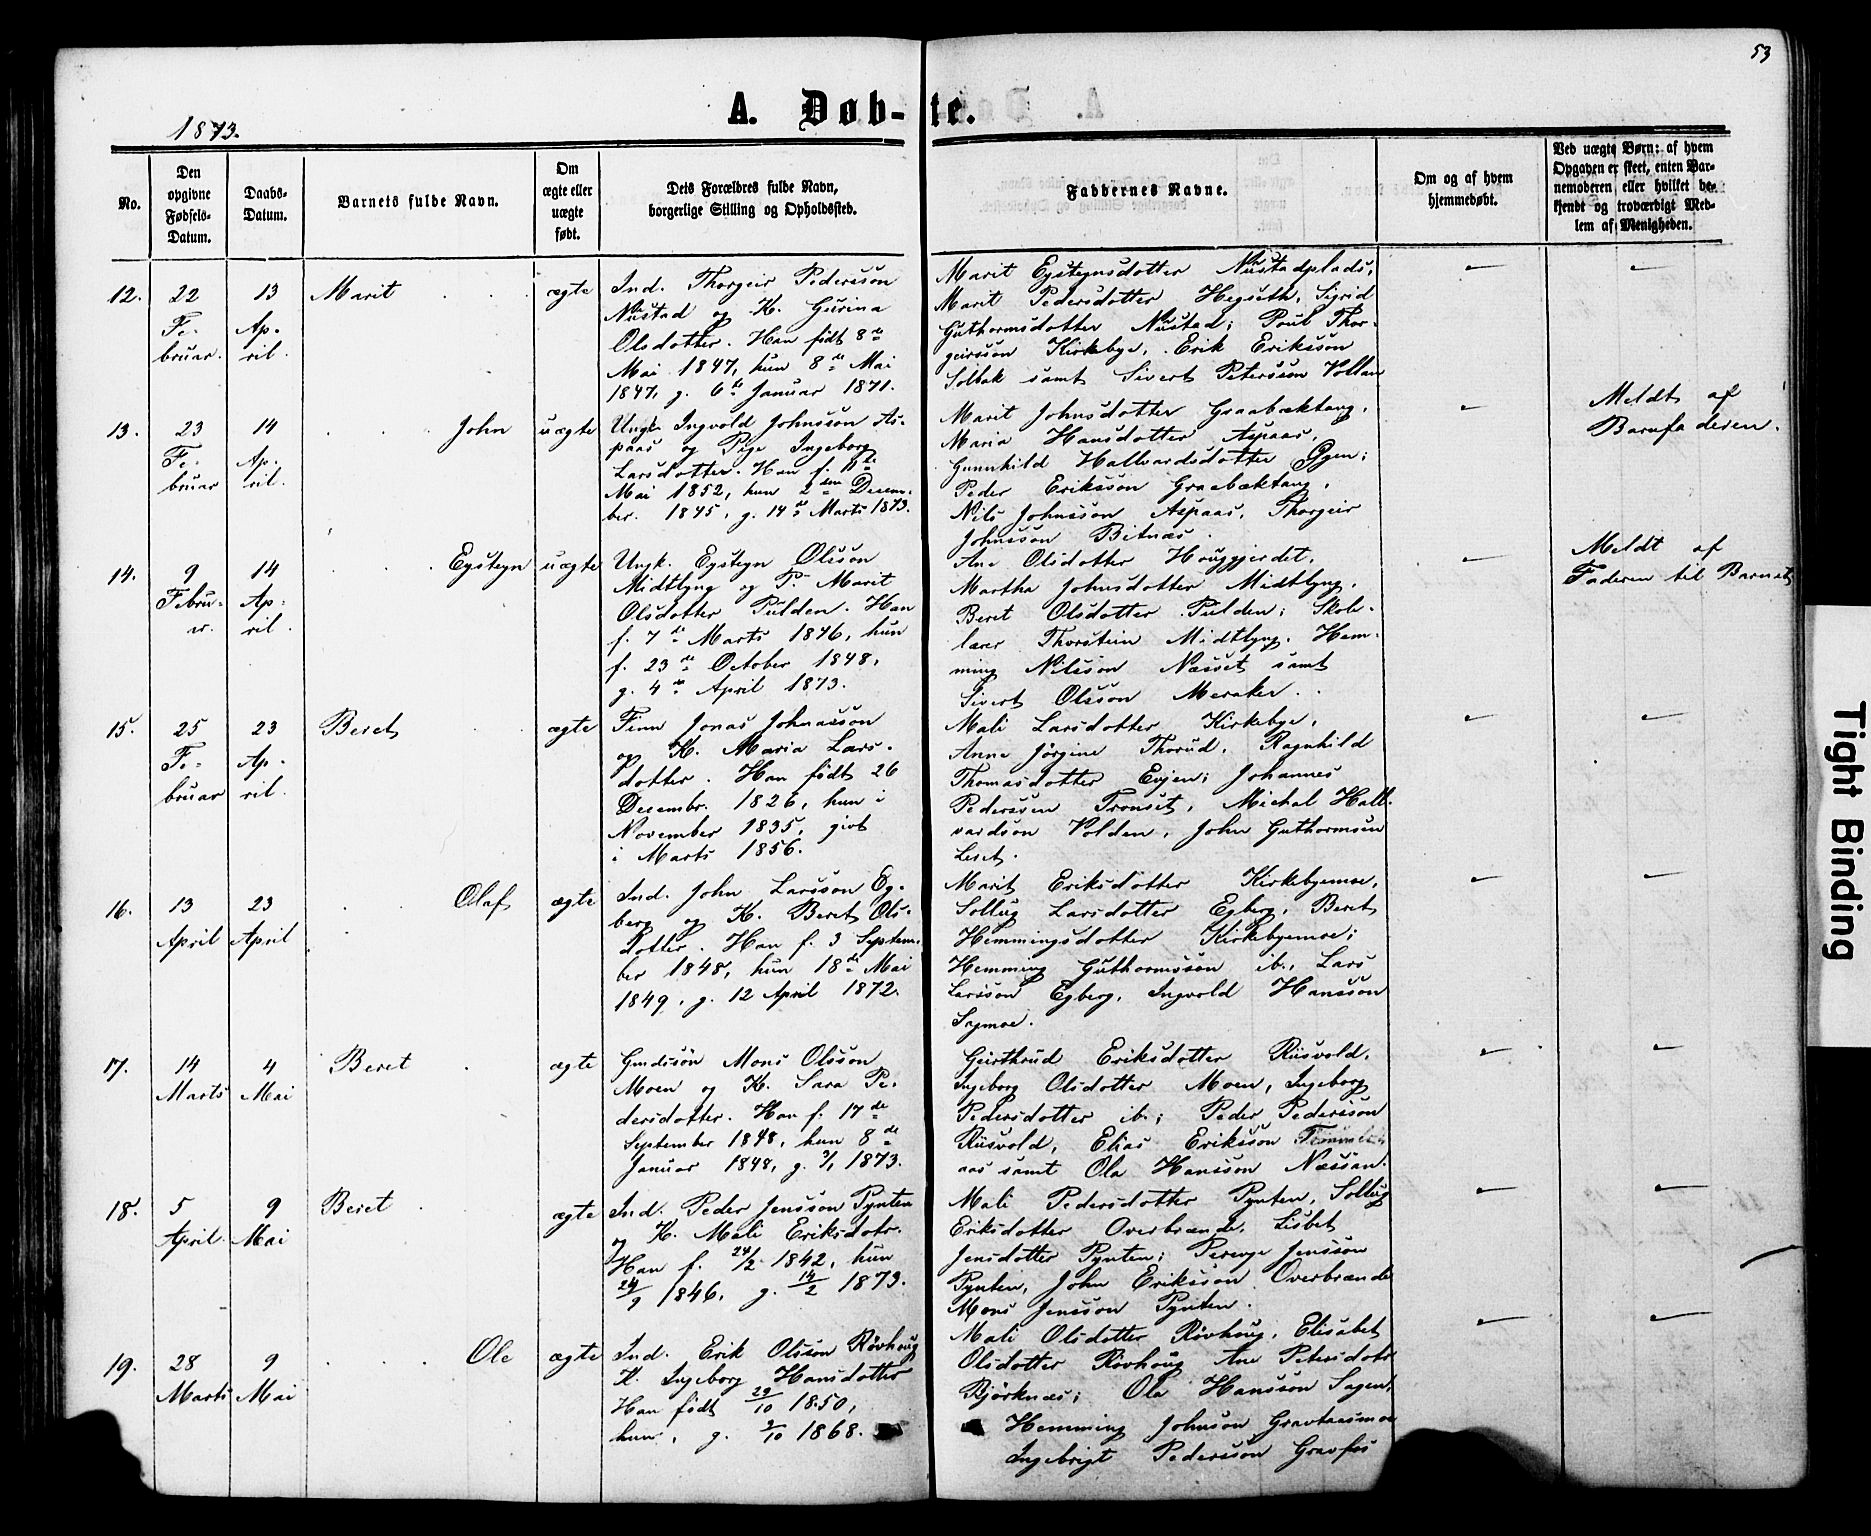 53
A. Døb-te.
1873.
No.
Den opgivne Fødsels-Datum.
Daabs-Datum.
Barnets fulde Navn.
Om ægte eller uægte født.
Dets Forældres fulde Navn, borgerlige Stilling og Opholdssted.
Faddernes Navne.
Om og af hvem hjemmedøbt.
Ved uægte Børn: af hvem Opgaven er skeet, enten Barnemoderen eller hvilket bekjendt og troværdigt Medlem af Menigheden.
12. 22 Februar. 13 April. Marit ægte
Ind. Thorgeir Pedersson
Nustad og K. Gurina
Olsdotter. Han født 8de
Mai 1847, hun 8de Mai
1847, g. 6te Januar 1871.
Marit Eysteynsdotter Nustadplads,
Marit Pedersdotter Hegseth, Sigrid
Guthormsdotter Nustad; Poul Thor-
geirsson Kirkebye, Erik Eriksson
Solbak samt Sivert Petersson Vollan
— —
13. 23 Februar 14 April. John uægte
Ungk. Ingvold Johnsson As-
paas og Pige Ingeborg
Larsdotter. Han f. 11te
Mai 1852, hun 2den Decem-
ber. 1845, g. 14de Marts 1873.
Marit Johnsdotter Graabæktang,
Maria Hansdotter Aspaas,
Gunnhild Hallvardsdotter Gyen;
Peder Eriksson Graabæktang,
Nils Johnsson Aspaas, Thorgeir
Johnsson Bitnæs.
—
Meldt af
Barnfaderen.
14. 9 Februar. 14 April. Eysteyn uægte
Ungk. Eysteyn Olsson
Midtlyng og P. Marit
Olsdotter Pulden. Han
f. 7de Marts 1846, hun
f. 23de October 1848,
g. 4de April 1873.
Ane Olsdotter Houggjerdet,
Martha Johnsdotter Midtlyng,
Beret Olsdotter Pulden; Skole-
lærer Thorstein Midtlyng, Hem-
ming Nilsson Næsset samt
Sivert Olsson Meraker.
—
Meldt af
Faderen til Barnet
15. 25 Februar 23 April. Beret ægte
Finn Jonas Johnasson
og K. Maria Lars-
dotter. Han født 26
Decembr. 1826, hun i
November 1835, givt
i Marts 1856.
Mali Larsdotter Kirkebye,
Anne Jörgine Thorud, Ragnhild
Thomasdotter Evjen; Johannes
Pederssen Tronset, Michal Hall-
vardson Volden, John Guthormsen
Leset.
— —
16. 13 April 23 April Olaf ægte
Ind. John Larsson Eg-
berg og K. Beret Ols-
dotter. Han f. 3 Septem-
ber 1848, hun 18de Mai
1849, g. 12 April 1872.
Marit Eriksdotter Kirkebyemoe,
Sollug Larsdotter Egberg, Beret
Hemmingsdotter Kirkebyemoe;
Hemming Guthormsson ib., Lars
Larsson Egberg, Ingvold Hansson
Sagmoe.
— —
17. 14 Marts 4 Mai Beret ægte
Gaardssön Mons Olsson
Moen og K. Sara Pe-
dersdotter. Han f. 17de
September 1848, hun 8de
Januar 1848, g. 3/1 1873.
Gurthrud Eriksdotter Riisvold,
Ingeborg Olsdotter Moen, Ingeborg
Pedersdotter ib.; Peder Pedersson
Riisvold, Elias Eriksson
aas samt Ola Hansson Næssan.
— —
18. 5 April. 9 Mai Beret ægte
Ind. Peder Jensson Pynten
og K. Mali Eriksdotr.
Han f. 24/2 1842, hun
24/9 1846, g. 14/2 1873.
Mali Pedersdotter Pynten, Sollug
Eriksdotter Overbrænde, Lisbet
Jensdotter Pynten; Jensson
Pynten, John Eriksson Overbrænde
Mons Jensson Pynten.
— —
19. 28 Marts 9 Mai Ole ægte
Ind. Erik Olsson Rövhoug
K. Ingeborg Hansdotter
Han født 29/10 1850,
hun, g. 2/10 1868.
Mali Olsdotter Rövhoug, Elisabet
Olsdotter Rövhoug Ane Petersdotr
Björknæs; Ola Hansson Sagen,
Hemming Johnson Gravaasmoe
Ingebrigt Pedersson Gravfos
— —
Tight Binding